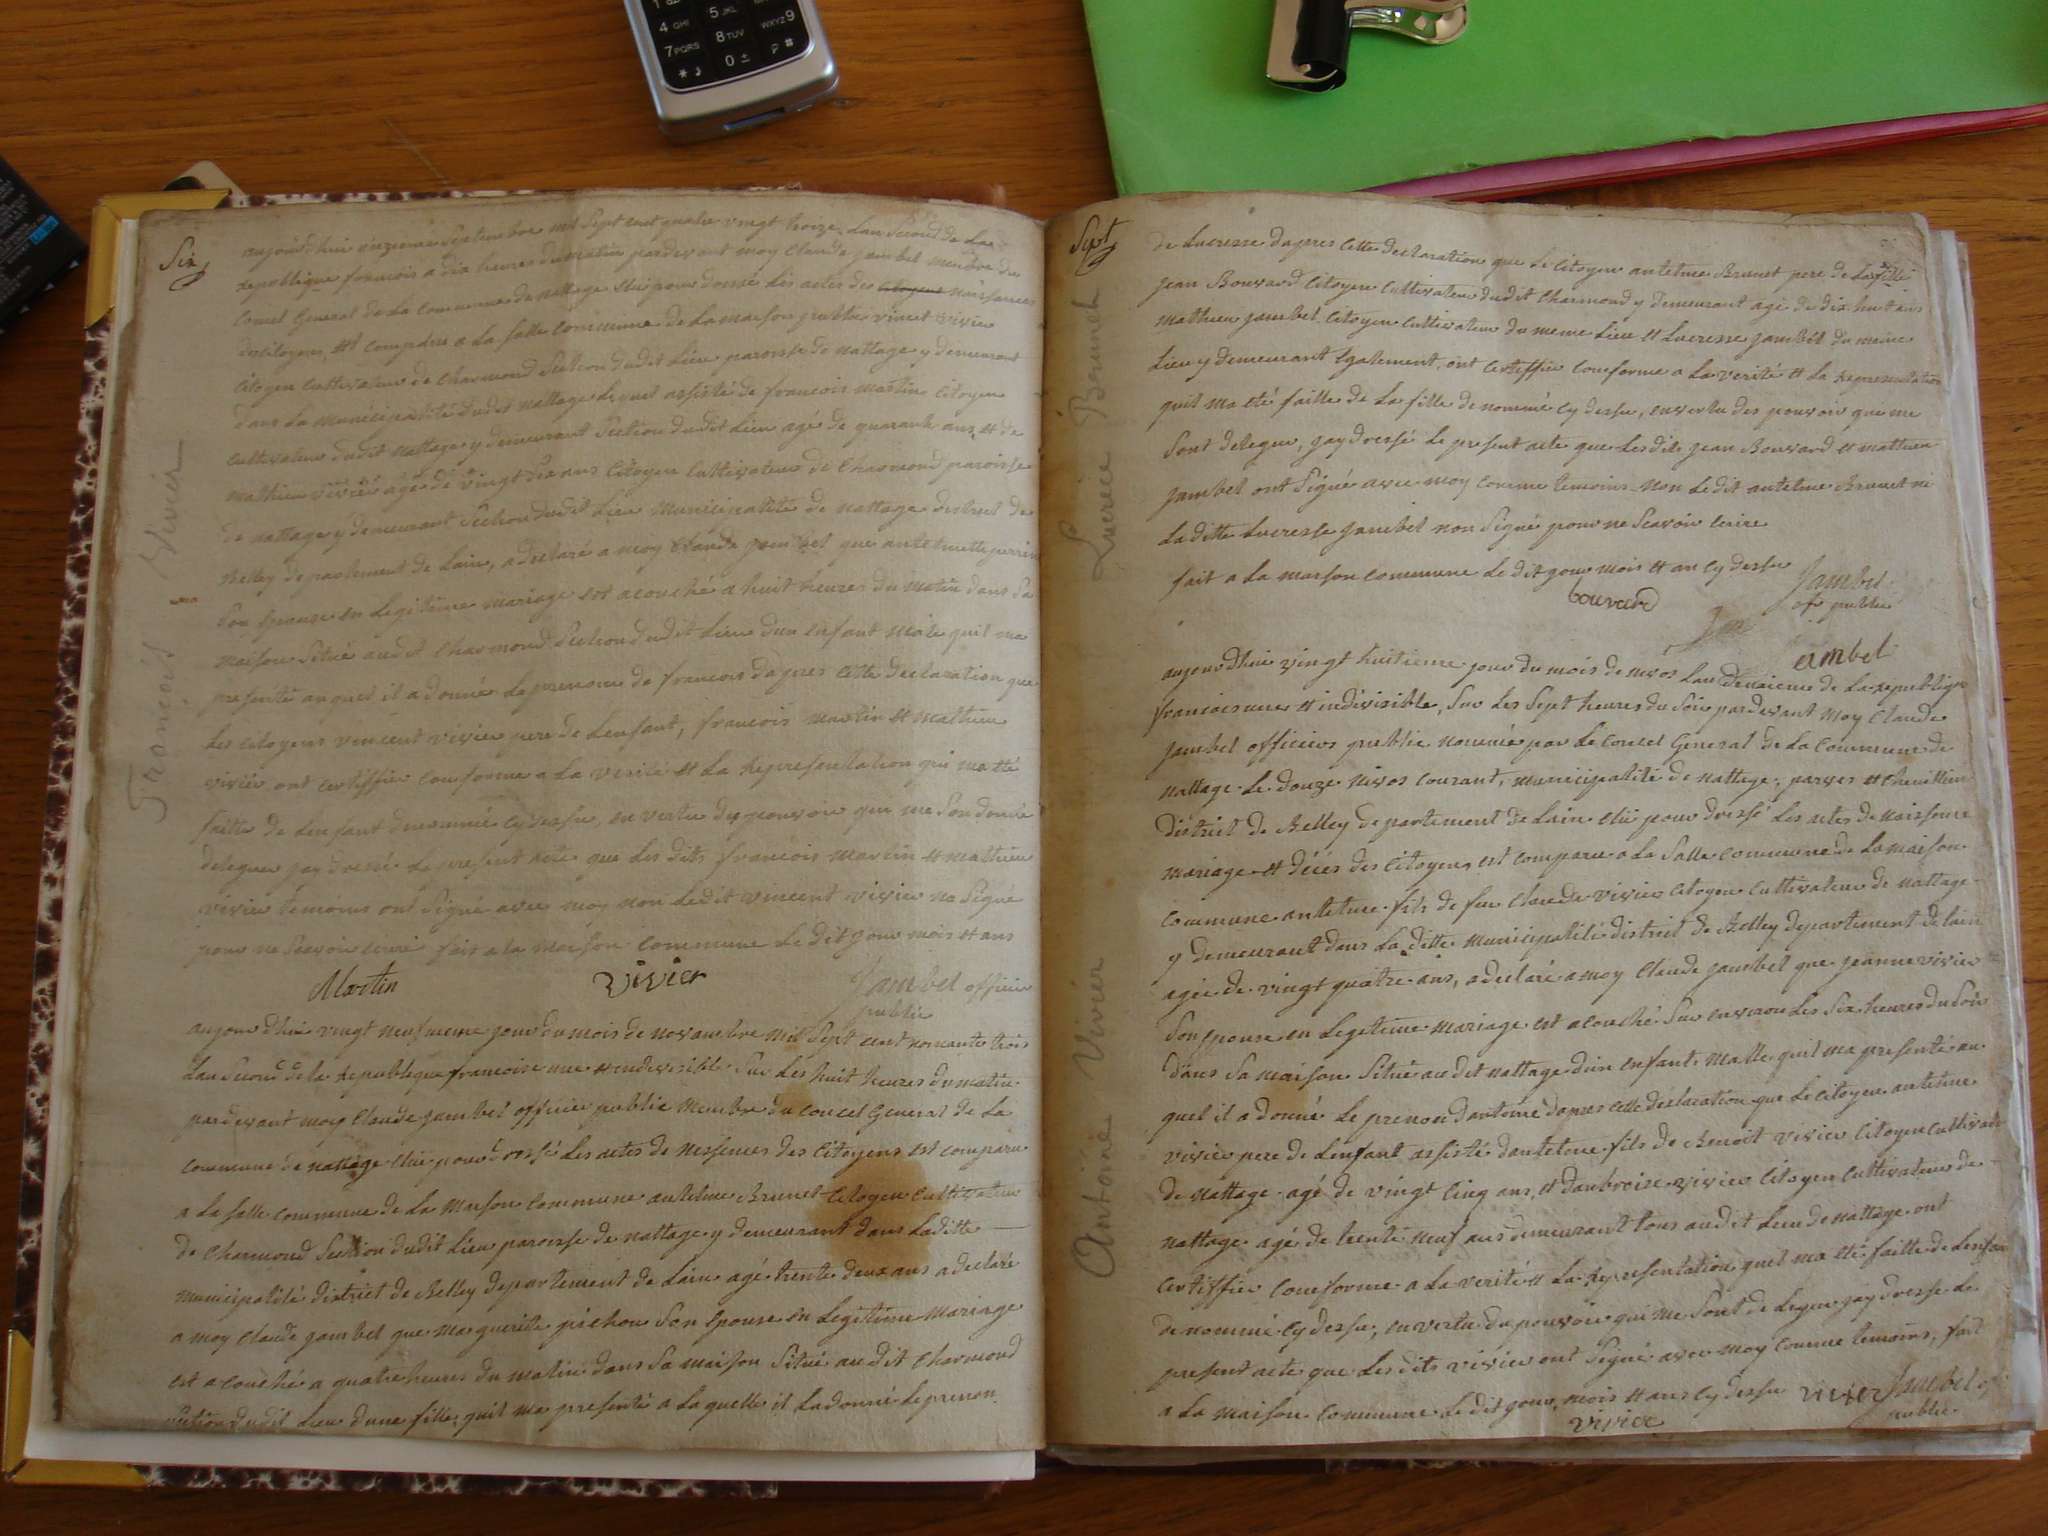 4 GHI
5 JKL
7 PQRS
8 TUV
WXYZ 9
* 
0 ±
#
Six
aujourd'hui onzieme Septembre mil Sept cent quatre vingt treize Lan Second de La
Republique francois a dix heures du matin pardevant moy Claude jambel membre du
Concel General de La Commune de nattage elui pour dressé Les actes des citoyens naissances
des citoyens est comparu a La Salle commune de La maison public vincent vivier
citoyen cultivateur de Charmond Section dudit Lieu paroisse de nattage y demeurant
dans La Municipalité dudit nattage Lequel assisté de francois martin citoyen
cultivateur dudit nattage y demeurant Section dudit Lieu agé de quarante ans et de
mathieu vivier agé de vingt Six ans citoyen cultivateur de Charmond paroisse
de nattage y demeurant Section dudit Lieu Municipalité de nattage district de
Belley departement de Lain, a declaré a moy Claude jambel que antelmette perrin
Son epouse en Legitime mariage est acouché a huit heures du matin dans Sa
maison Situé audit Charmond Section dudit Lieu dun enfant male quil ma
presenté auquel il a donné Le prenom de francois dapres cette declaration que
Les citoyens vincent vivier pere de Lenfant, francois martin et mathieu
vivier ont certiffier conforme a La verité et La Representation qui ma eté
faitte de Lenfant denommé cy dessu, en vertu du pouvoir qui me Son donné
deleguer jay dressé Le present acte que Les dits francois martin et mathieu
vivier temoins ont Signé avec moy non Ledit vincent vivier na Signé
pour ne Scavoir ecrire fait a la maison commune Le dit jour mois et ans
Martin vivier Jambel officier
public
aujourdhui vingt neufieme jour du mois de novambre mil Sept cent nonante trois
Lan Second de la Republique francoise une et indevisible Sur Les huit heures du matin
pardevant moy Claude jambel officier public Membre du Concel General de La
commune de nattage elui pour dressé Les actes de nessences des citoyens est comparu
a La Salle commune de La Maison commune antelme Brunet citoyen cultivateur
de Charmond Section dudit Lieu paroisse de nattage y demeurant dans Laditte
municipalité district de Belley departement de Lain agé trente deux ans a declaré
a moy Claude jambel que marguerite pichon Son epouse en Legitime mariage
est acouché a quatre heures du matin dans Sa maison Situé audit Charmond
Section dudit Lieu dune fille quil ma presenté a La quelle il La donné Le prenon
François Vivier
Sept
de Lucresse dapres cette declaration que Le Citoyen antelme Brunet pere de La fille
jean Bouvard citoyen cultivateur dudit Charmond y demeurant agé de dix huit ans
mathieu jambel citoyen cultivateur du meme Lieu et Lucresse jambel du meme
Lieu y demeurant Egalement, ont certiffier conforme a La verité et La Representation
quil ma eté faitte de La fille denommé cy dessu, en vertu des pouvoir que me
Sont deleguer, jay dressé Le present acte que Les dits jean Bouvard et mathieu
jambel ont Signé avec moy comme temoins non Le dit antelme Brunet ni
La ditte Lucresse jambel non Signé pour ne Scavoir ecrire
fait a La maison commune Le dit jour mois et an cy dessu
bouvard Jambel
of public
jambel
aujourdhui vingt huitieme jour du mois de nivos Lan deuxieme de La republique
francois une et indivisible, Sur Les Sept heures du Soir pardevant moy Claude
jambel officiers public nommé par Le Concel General de La Commune de
nattage Le douze nivos courant, municipalité de nattage, parves et Chemillieu
district de Belley departement de Lain elui pour dressé Les actes de naissence
mariage et décès des citoyens est comparu a La Salle commune de La maison
commune antelme fils de feu Claude vivier citoyen cultivateur de nattage
y demeurant dans La ditte municipalité district de Belley departement de Lain
agée de vingt quatre ans, a declaré a moy Claude jambel que jeanne vivier
Son epouse en Legitime mariage est acouché Sur environ Les Six heures du Soir
dans Sa maison Situé audit nattage dun enfant Malle quil ma presenté au
quel il a donné Le prenon dantoine dapres cette declaration que Le citoyen antelme
vivier pere de Lenfant assisté dantelme fils de Benoit vivier citoyen cultivateur
de nattage agé de vingt cinq ans, et dambroise vivier citoyen cultivateur de
nattage agé de trente neuf ans demeurant tous audit Lieu de nattage ont
certiffier conforme a La verité et La Representation quil ma eté faitte de Lenfan
denommé cy dessu, en vertu du pouvoir qui me Sont deleguer jay dressé Le
present acte que Les dits vivier ont Signé avec moy comme temoins, fait
a La maison commune Le dit jour mois et ans cy dessu vivier Jambel of
vivier public
Lucrèce Brunet
Antoine Vivier